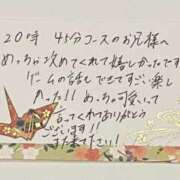 20時 45分コースのお兄様へ
めっちゃ攻めてくれて嬉しかったです
ゲームの話もできてすごい楽し
かった!! めっちゃ可愛いって
言ってくれてありがとう
ございます!!
また来てださい!